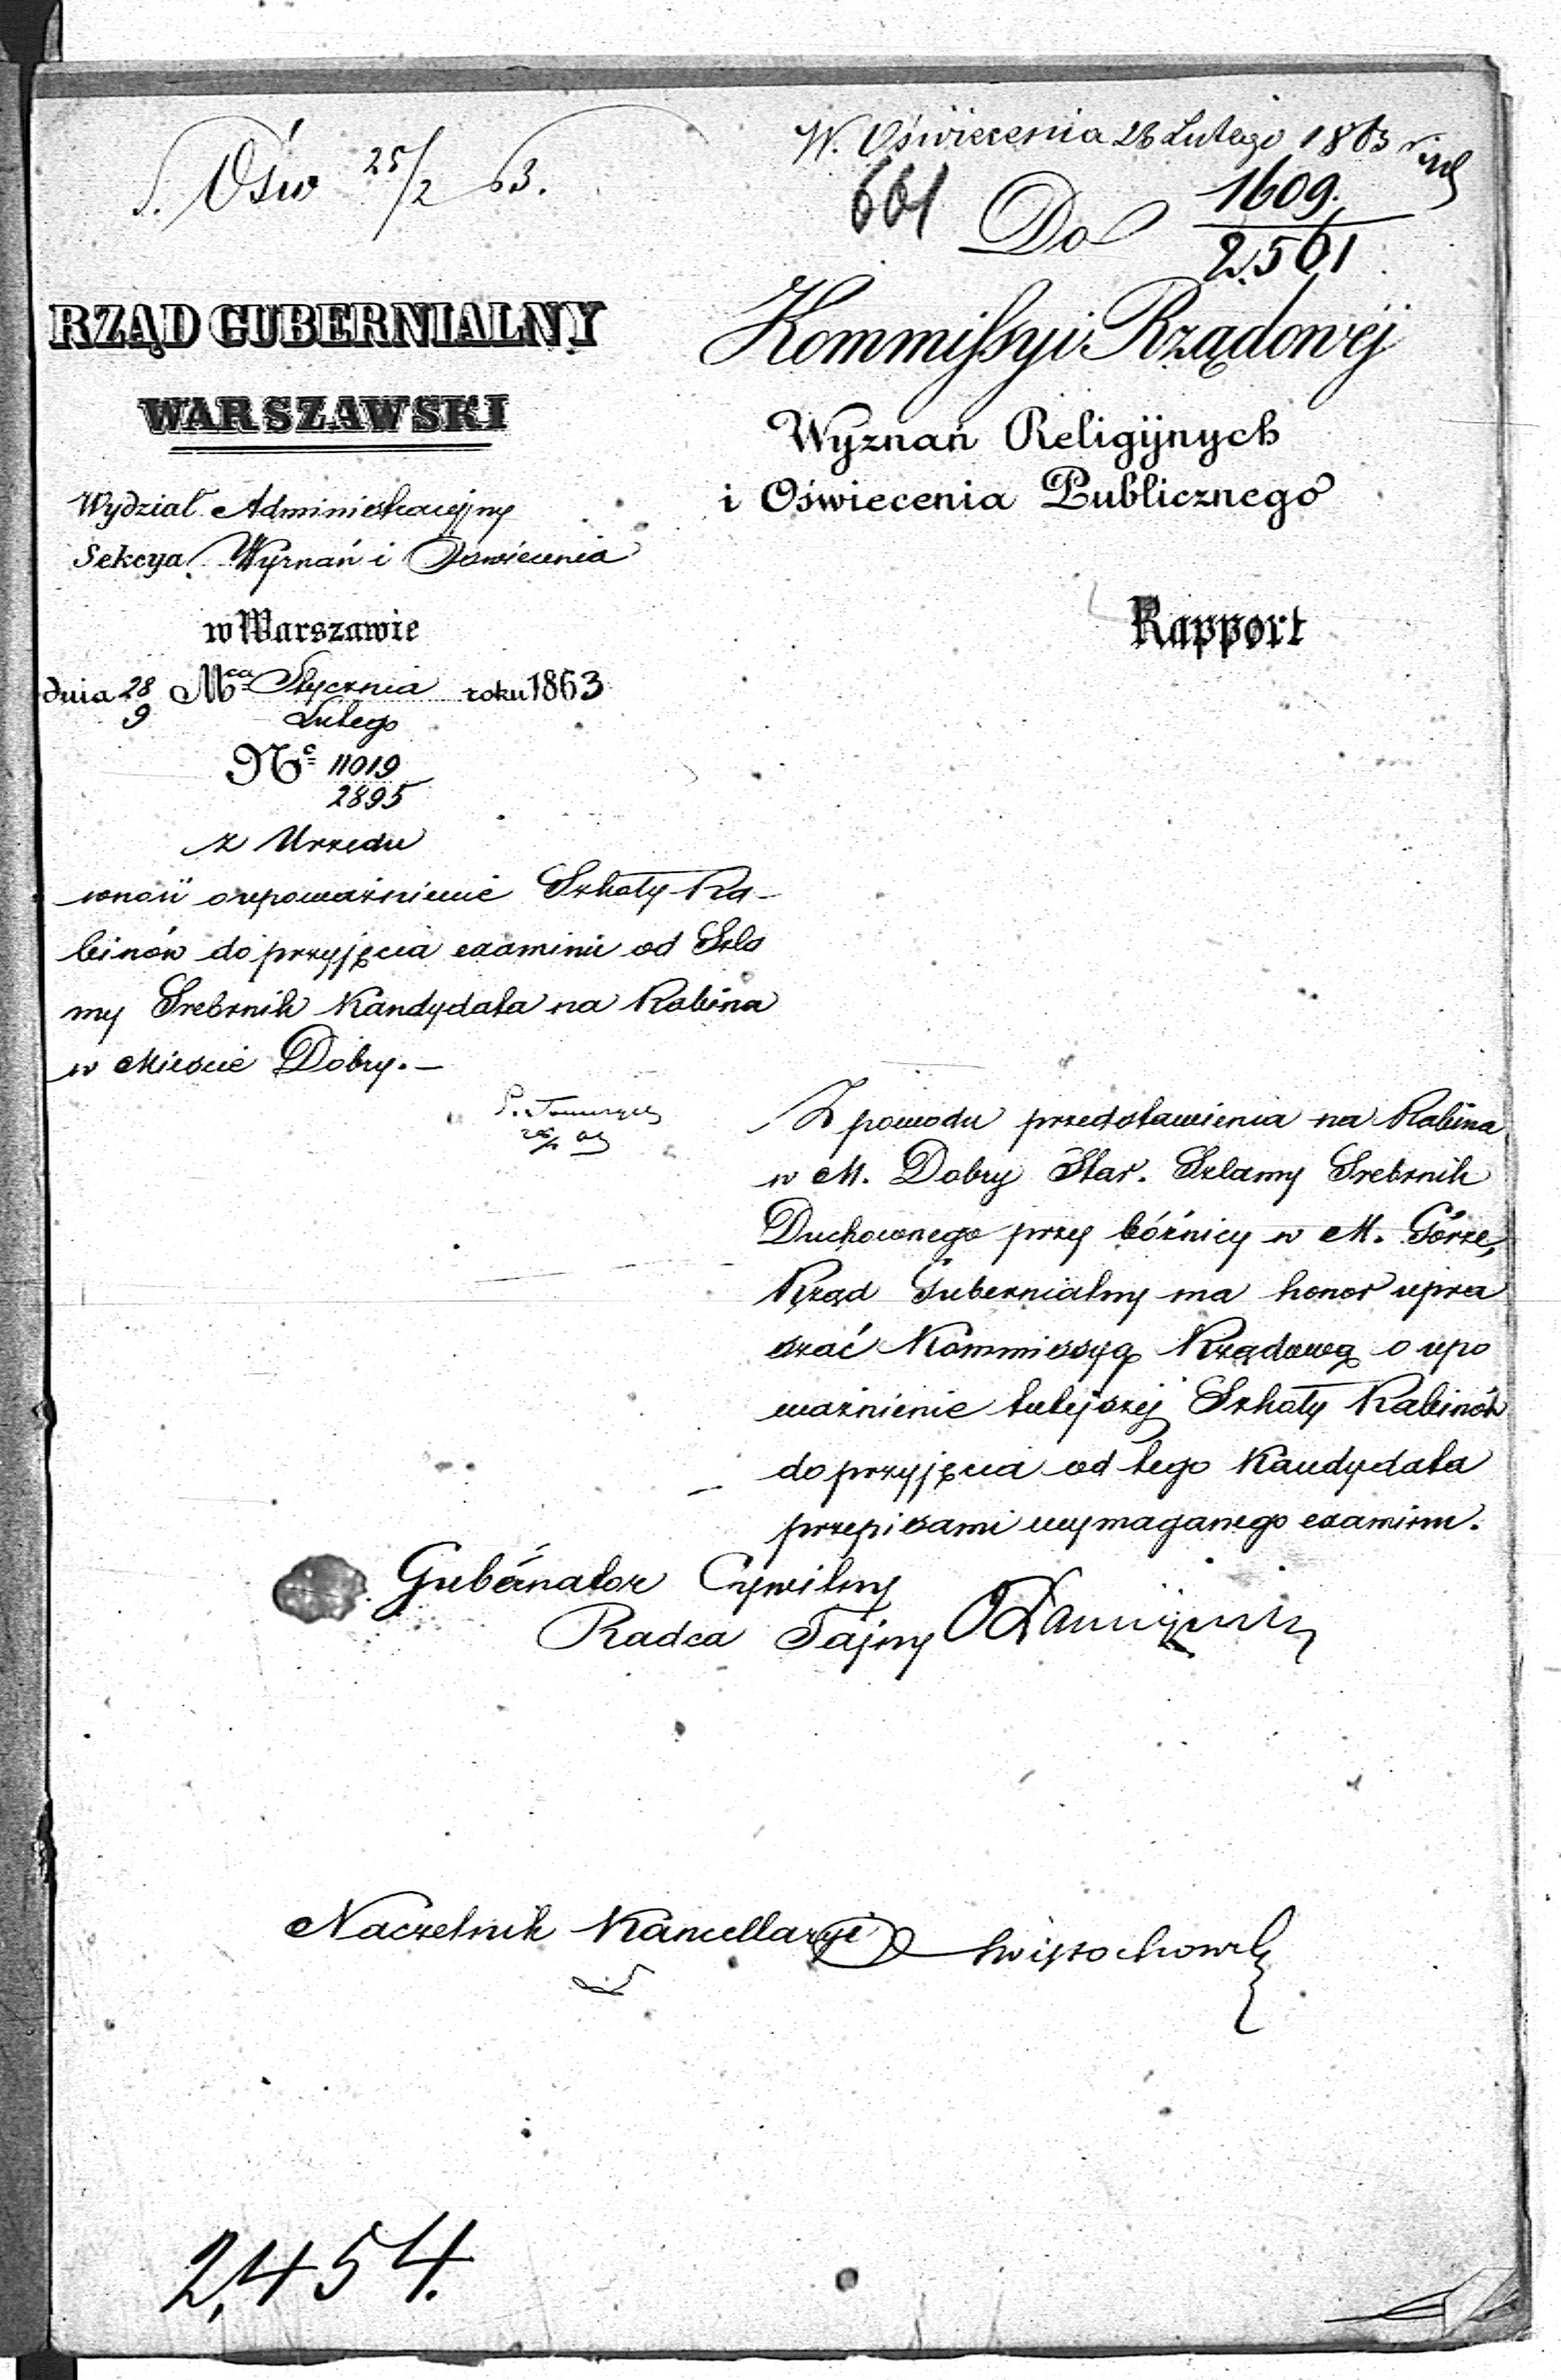 S. Ośw 25/2 63.
W. Oświecenia 26 Lutego 1863
661
Do
1609.
2.561
RZĄD GUBERNIALNY
WARSZAWSKI
Kommissyi Rządowéj
Wyznań Religijnych
i Oświecenia Publicznego
Wydział Administracyjny
Sekcya Wyznań i Oświecenia
w Warszawie
Rapport
dnia 28 Mca Stycznia roku 1863
9 Lutego
No 11019
2895
z Urzędu
wnosi o upoważnienie Szkoły Ra-
binów do przyjęcia examinu od Szla
my Srebrnik Kandydata na Rabina
w Mieście Dobry.—
Z powodu przedstawienia na Rabina
w M. Dobry Star. Szlamy Srebrnik
Duchownego przy bóżnicy w M. Górze,
Rząd Gubernialny ma honor upra
szać Kommissyą Rządową o upo
ważnienie tutejszéj Szkoły Rabinów
do przyjęcia od tego Kandydata
przepisami wymaganego examinu.
Gubernator Cywilny
Radca Tajny
Naczelnik Kancellaryi
2,454.